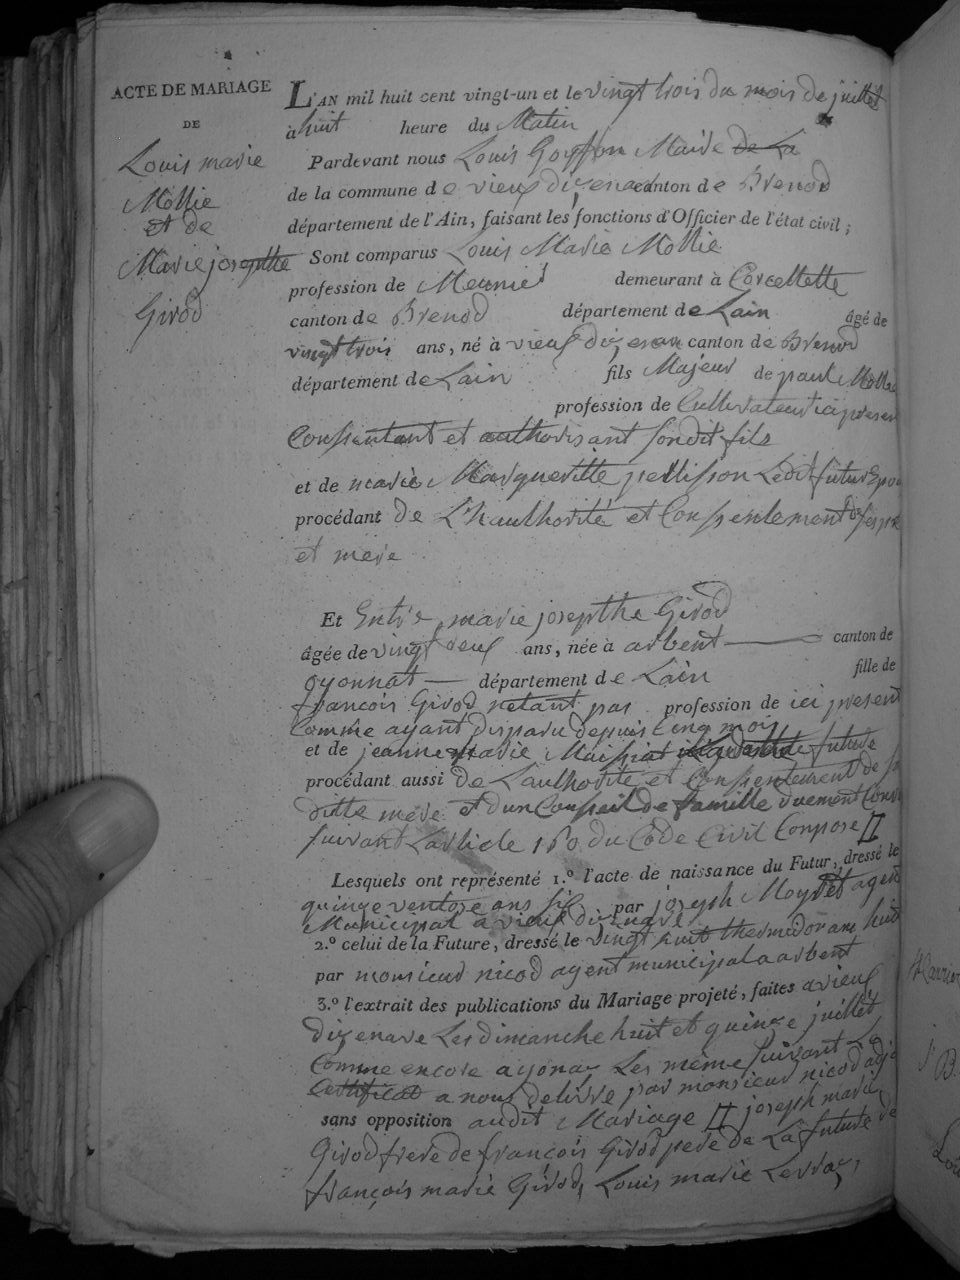 ACTE DE MARIAGE
DE
Louis marie
Mollie
et de
Marie josepthe
Girod
L'AN mil huit cent vingt-un et le vingt trois du mois de juillet
à huit heure du Matin
Pardevant nous Louis Maire de La
de la commune de vieux dizenave canton de Brenod
département de l'Ain, faisant les fonctions d'Officier de l'état civil ;
Sont comparus Louis Marie Mollie
profession de Meunier demeurant à Corcellette
canton de Brenod département de Lain âgé de
vingt trois ans, né à vieux dizenave canton de Brenod
département de Lain fils Majeur de paul Mollie
profession de Cultivateur ici present
Consentant et authorisant sondit fils
et de marie Margueritte pellisson Ledit futur Epou
procédant de L'hauthorité et Consentement de ses pere
et mere
Et Entre marie josepthe Girod
âgée de vingt deux ans, née à arbent canton de
oyonnat département de Lain fille de
francois Girod netant pas profession de ici present
Comme ayant disparu depuis Cinq mois
et de jeanne marie Muissiat future
procédant aussi de Lauthorité et Consentement de sa
ditte mere et dun Conseil de famille duement Convo
suivant Larticle 160 du Code Civil Conpose
Lesquels ont représenté 1.º l'acte de naissance du Futur, dressé le
quinze ventose ans six par joseph agent
Municipal a vieux dizenave
2.º celui de la Future, dressé le vingt huit thermidor ans huit
par monsieur nicod agent municipal a arbent
3.º l'extrait des publications du Mariage projeté, faites a vieux
dizenave Les dimanche huit et quinze juillet
Comme encore a yonax Les même suivant Le
Certificat a nous delivré par monsieur nicod adj
sans opposition audit Mariage joseph marie
Girod frere de francois Girod pere de La future de
françois marie Girod, Louis marie